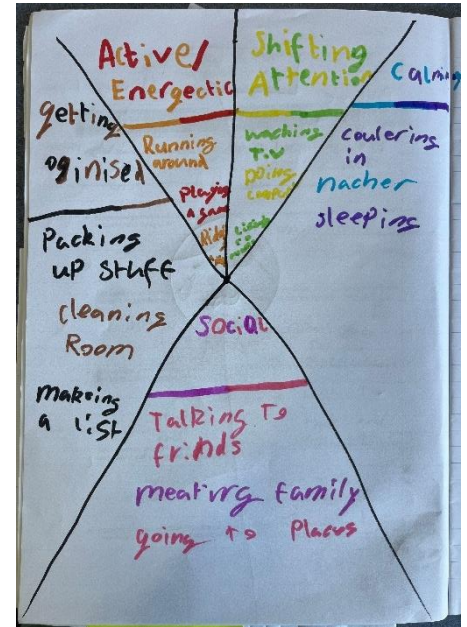 Active/
Energectic
Running
around
Playing
a game
Shifting
Attention
waching
T.V
Doing
Calming
coulering
in
nacher
sleeping
getting
oginised
Packing
up stuff
cleaning
Room
makeing
a list
Social
Talking To
frinds
meating family
going To Places